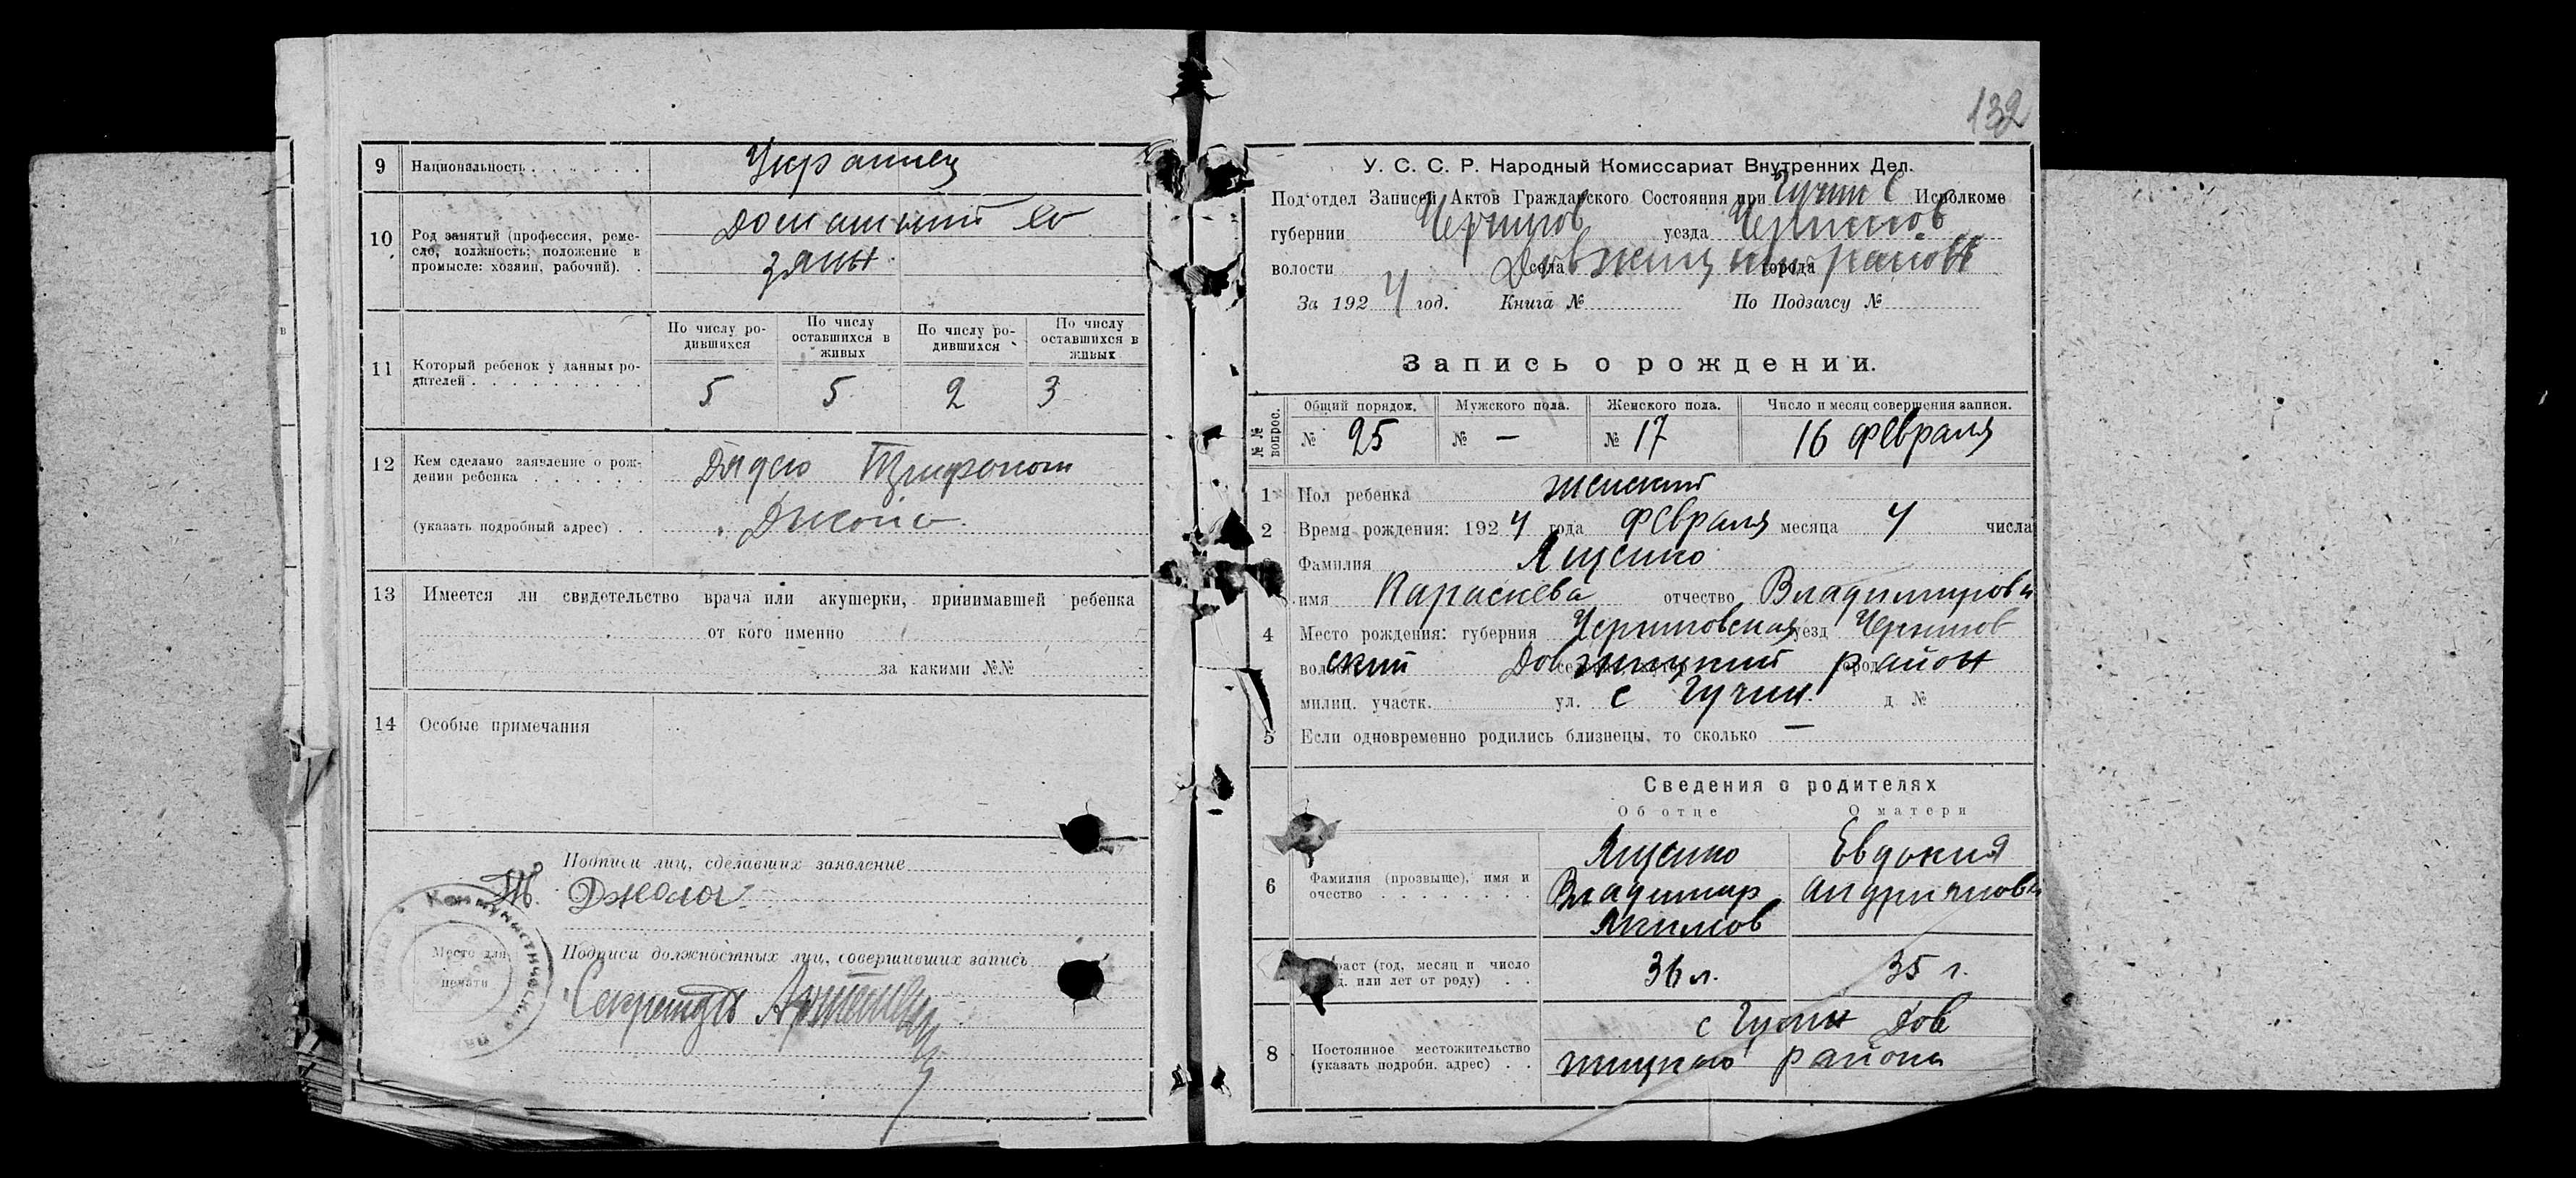 9 Национальность . . . . . . . Украинец
10 Род занятий (профессия, реме-
сло, должность; положение в
промысле: хозяин, рабочий). .
Домашний хо
зяин
11 Который ребенок у данных ро-
дителей . . . . . . . . . .
По числу ро-
дившихся
По числу
оставшихся в
живых
По числу ро-
дившихся
По числу
оставшихся в
живых
5 5 2 3
12 Кем сделано заявление о рож-
дении ребенка . . . . . .
Дядею Трифоном
(указать подробный адрес) . .
13 Имеется ли свидетельство врача или акушерки, принимавшей ребенка
от кого именно
за какими №№
14 Особые примечания
Подписи лиц, сделавших заявление
Место для
печати
Подписи должностных лиц, совершивших запись
Секретарь
132
У. С. С. Р. Народный Комиссариат Внутренних Дел.
Под'отдел Записей Актов Гражданского Состояния при Гучин С Исполкоме
губернии Чернигов уезда Чернигов
волости села города Довжицкий район
За 1924 год. Книга № По Подзагсу №
Запись о рождении.
№№ вопрос.
Общий порядок. Мужского пола. Женского пола. Число и месяц совершения записи.
№ 25 № — № 17 16 февраля
1 Пол ребенка женский
2 Время рождения: 1924 года февраля месяца 4 числа
Фамилия Ященко
имя Параскева отчество Владимировн
4 Место рождения: губерния Черниговская уезд Чернигов
ский Довжицкий район
милиц. участк. ул. с Гучин д №
5 Если одновременно родились близнецы, то сколько —
Сведения о родителях
Об отце О матери
6 Фамилия (прозвыще), имя и
очество . . . . . . . .
Ященко
Владимир
Якимов
Евдокия
Андриановн
раст (год, месяц и число
д. или лет от роду) . .
36 л. 35 г.
8 Постоянное местожительство
(указать подробн. адрес) . .
с Гучин Дов
жицкого района